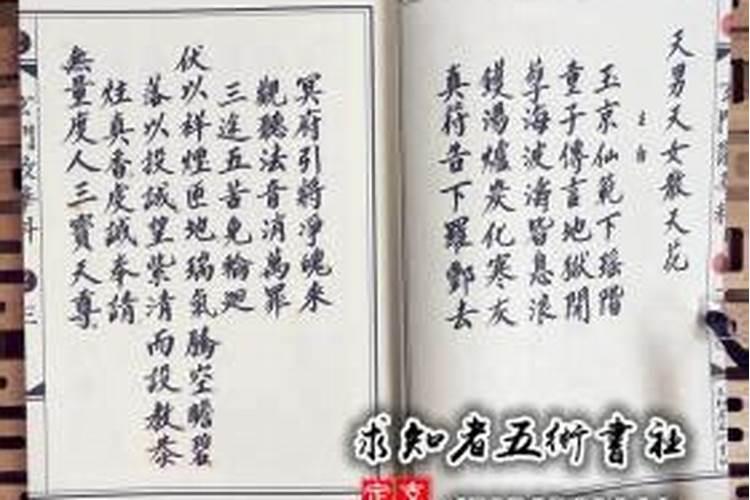 天男天女散天花
玉京仙範下瑤階
童子傳言地獄開
孽海波濤皆息浪
鑊湯爐炭化寒灰
真符告下羅酆去
冥府引將淨魄來
觀聽法音消萬罪
三途五苦免輪迴
伏以祥煙匝地瑞氣騰空瞻碧
落以投誠望紫清而設教恭
炷真香虔誠奉請
無量度人三寶天尊
求知者五術書社